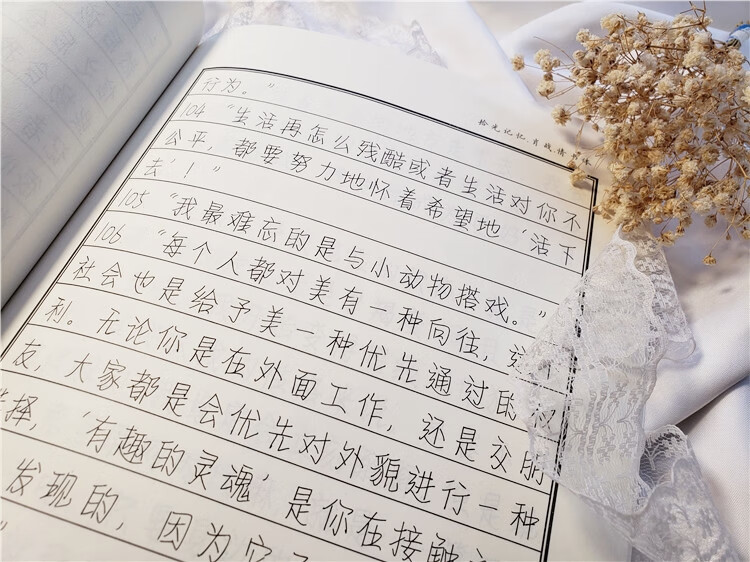 行为。”
拾光记忆.肖战情书体
104 “生活再怎么残酷或者生活对你不
公平，都要努力地怀着希望地‘活下
去’！”
105 “我最难忘的是与小动物搭戏。”
106 “每个人都对美有一种向往，这个
社会也是给予美一种优先通过的权
利。无论你是在外面工作，还是交朋
友，大家都是会优先对外貌进行一种
选择，‘有趣的灵魂’是你在接触
发现的，因为它